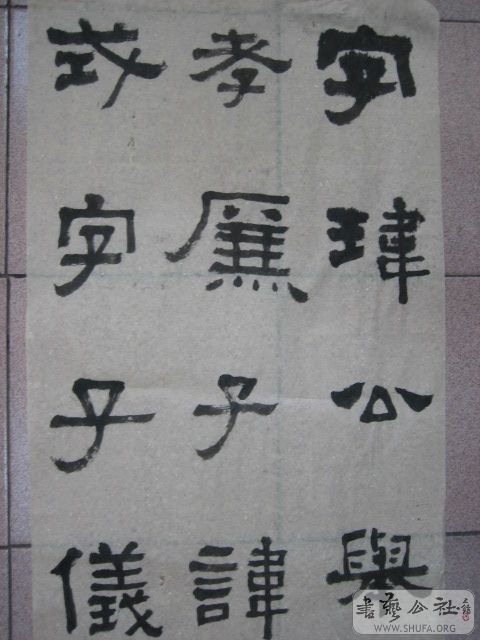 字瑋公舉
孝廉子諱
字子儀
書藝公社
WWW.SHUFA.ORG